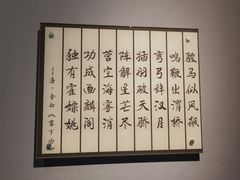 骏马似风飙
鸣鞭出渭桥
弯弓辞汉月
插羽破天骄
阵解星芒尽
营空海雾消
功成画麟阁
独有霍嫖姚
--唐·李白《塞下曲》